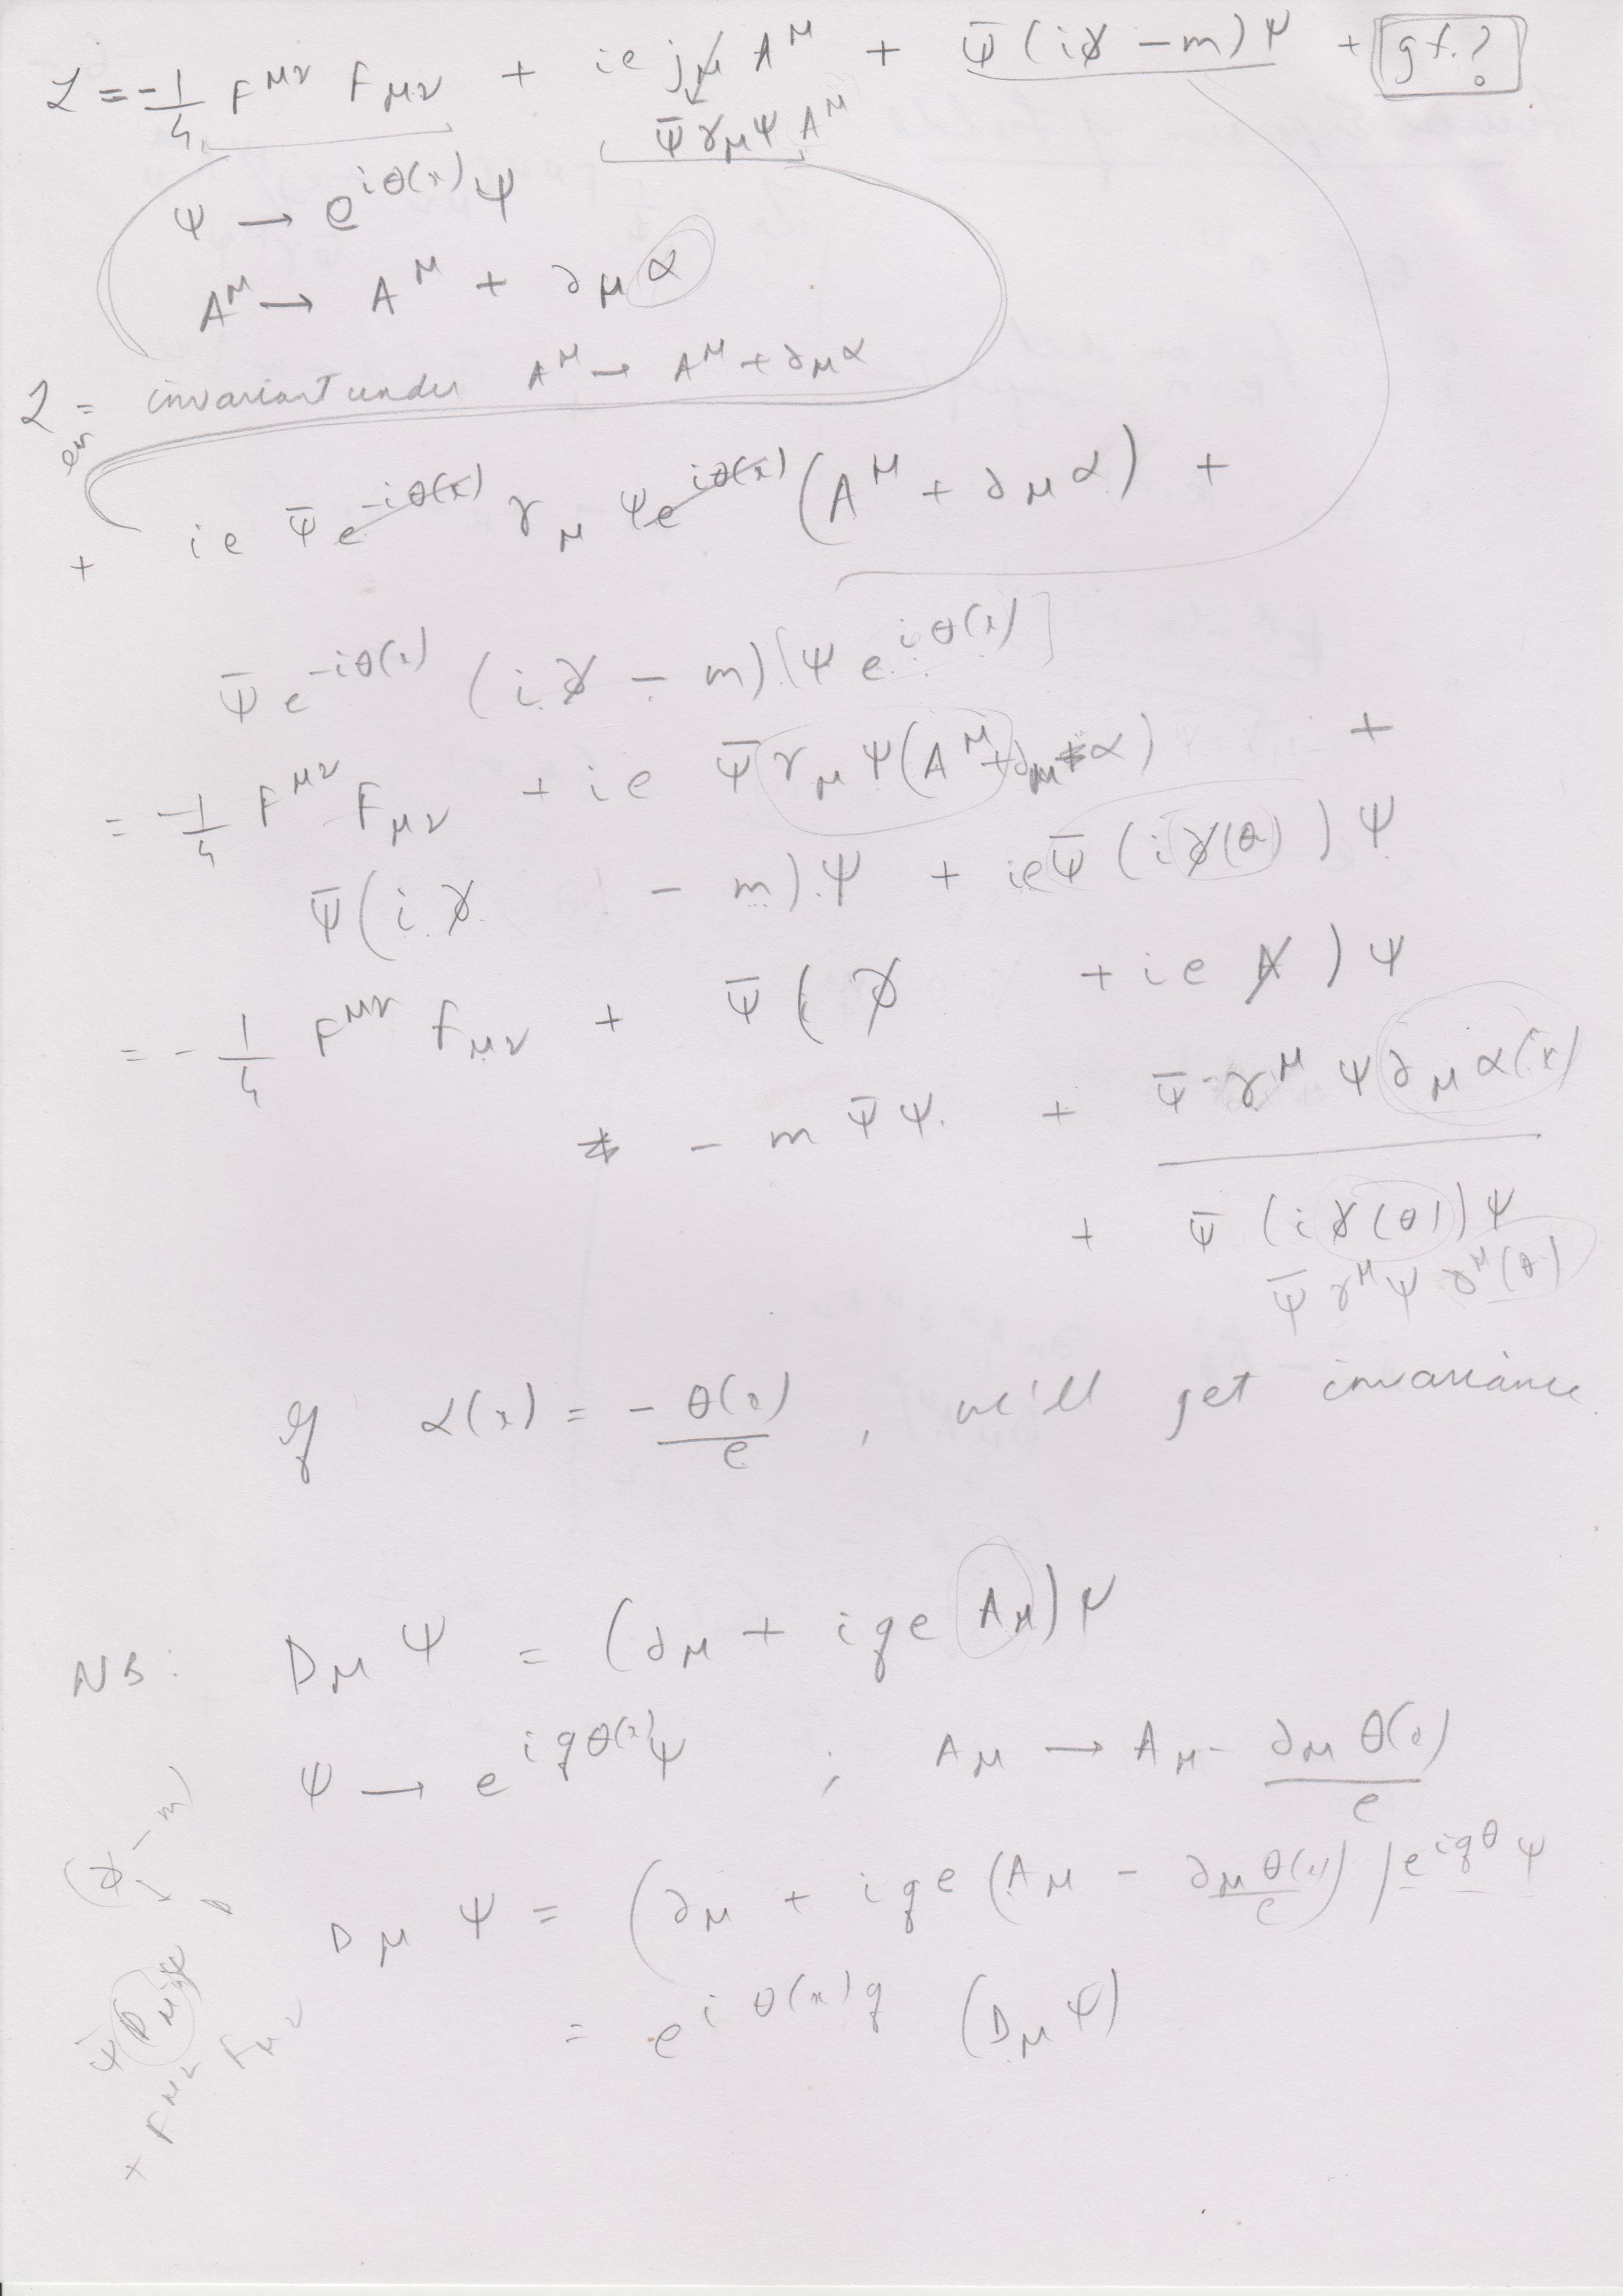 ℒ = -1/4 F^{μν} F_{μν} + ie j_μ A^μ + Ψ̄ (i∂̸ - m) Ψ + g f. ?
Ψ̄ γ_μ Ψ A^μ
Ψ → e^{iθ(x)} Ψ
A^μ → A^μ + ∂_μ α
ℒ = invariant under A^μ → A^μ + ∂_μ α
em
+ ie Ψ̄ e^{-iθ(x)} γ_μ Ψ e^{iθ(x)} (A^μ + ∂_μ α) +
Ψ̄ e^{-iθ(x)} (i∂̸ - m) [Ψ e^{iθ(x)}]
= -1/4 F^{μν} F_{μν} + ie Ψ̄ γ_μ Ψ (A^μ + ∂_μ α) +
Ψ̄ (i∂̸ - m) Ψ + ie Ψ̄ (i∂̸(θ)) Ψ
= -1/4 F^{μν} F_{μν} + Ψ̄ (∂̸ + ie A̸) Ψ
- m Ψ̄ Ψ. + Ψ̄ γ^μ Ψ ∂_μ α(x)
+ Ψ̄ (i∂̸(θ)) Ψ
Ψ̄ γ^μ Ψ ∂^μ(θ)
If α(x) = - θ(x)/e , we'll get invariance
NB: D_μ Ψ = (∂_μ + iqe A_μ) Ψ
Ψ → e^{iqθ(x)} Ψ ; A_μ → A_μ - ∂_μ θ(x)/e
(∂̸ - m)
D_μ Ψ = (∂_μ + iqe (A_μ - ∂_μ θ(x)/e)) e^{iqθ} Ψ
= e^{iθ(x)q} (D_μ Ψ)
+ F^{μν} F_{μν}